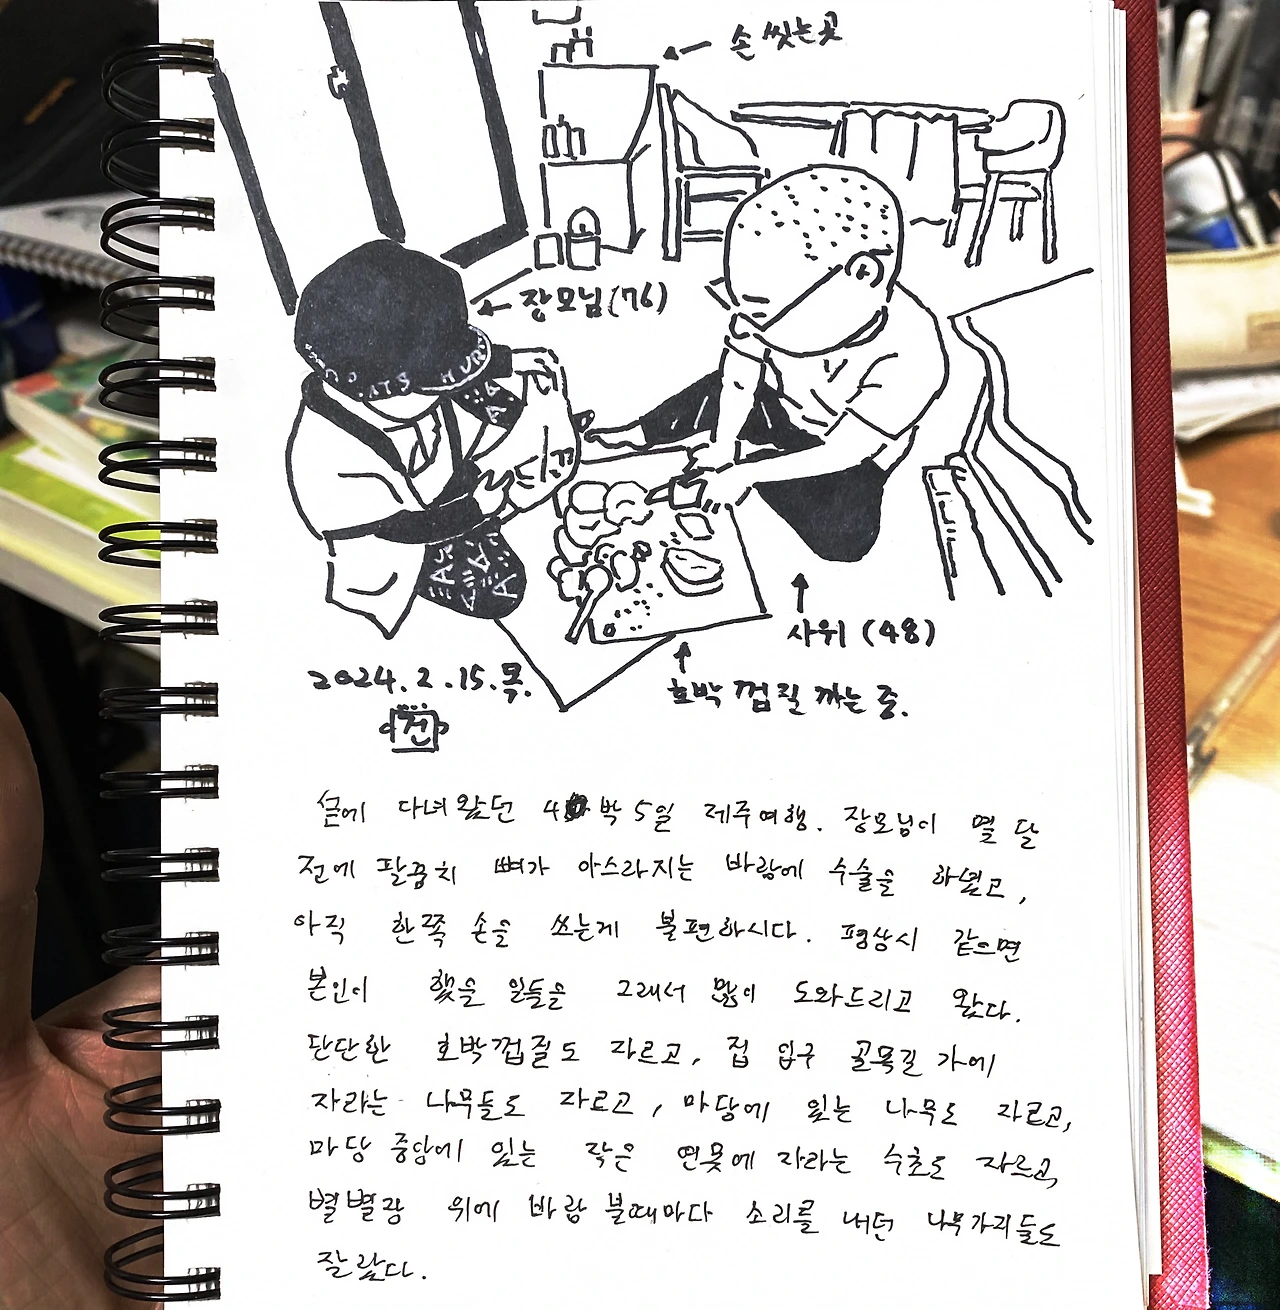 손 씻는 곳
장모님(76)
사위 (48)
호박 껍질 까는 중.
2024. 2. 15. 목.
건
설에 다녀왔던 4박 5일 제주여행. 장모님이 몇 달
전에 팔꿈치 뼈가 아스라지는 바람에 수술을 하셨고,
아직 한쪽 손을 쓰는게 불편하시다. 평상시 같으면
본인이 했을 일들을 그래서 많이 도와드리고 왔다.
단단한 호박껍질도 자르고, 집 입구 골목길 가에
자라는 나무들도 자르고, 마당에 있는 나무도 자르고,
마당 중앙에 있는 작은 연못에 자라는 수초도 자르고,
별별장 위에 바람 불때마다 소리를 내던 나무가지들도
잘랐다.